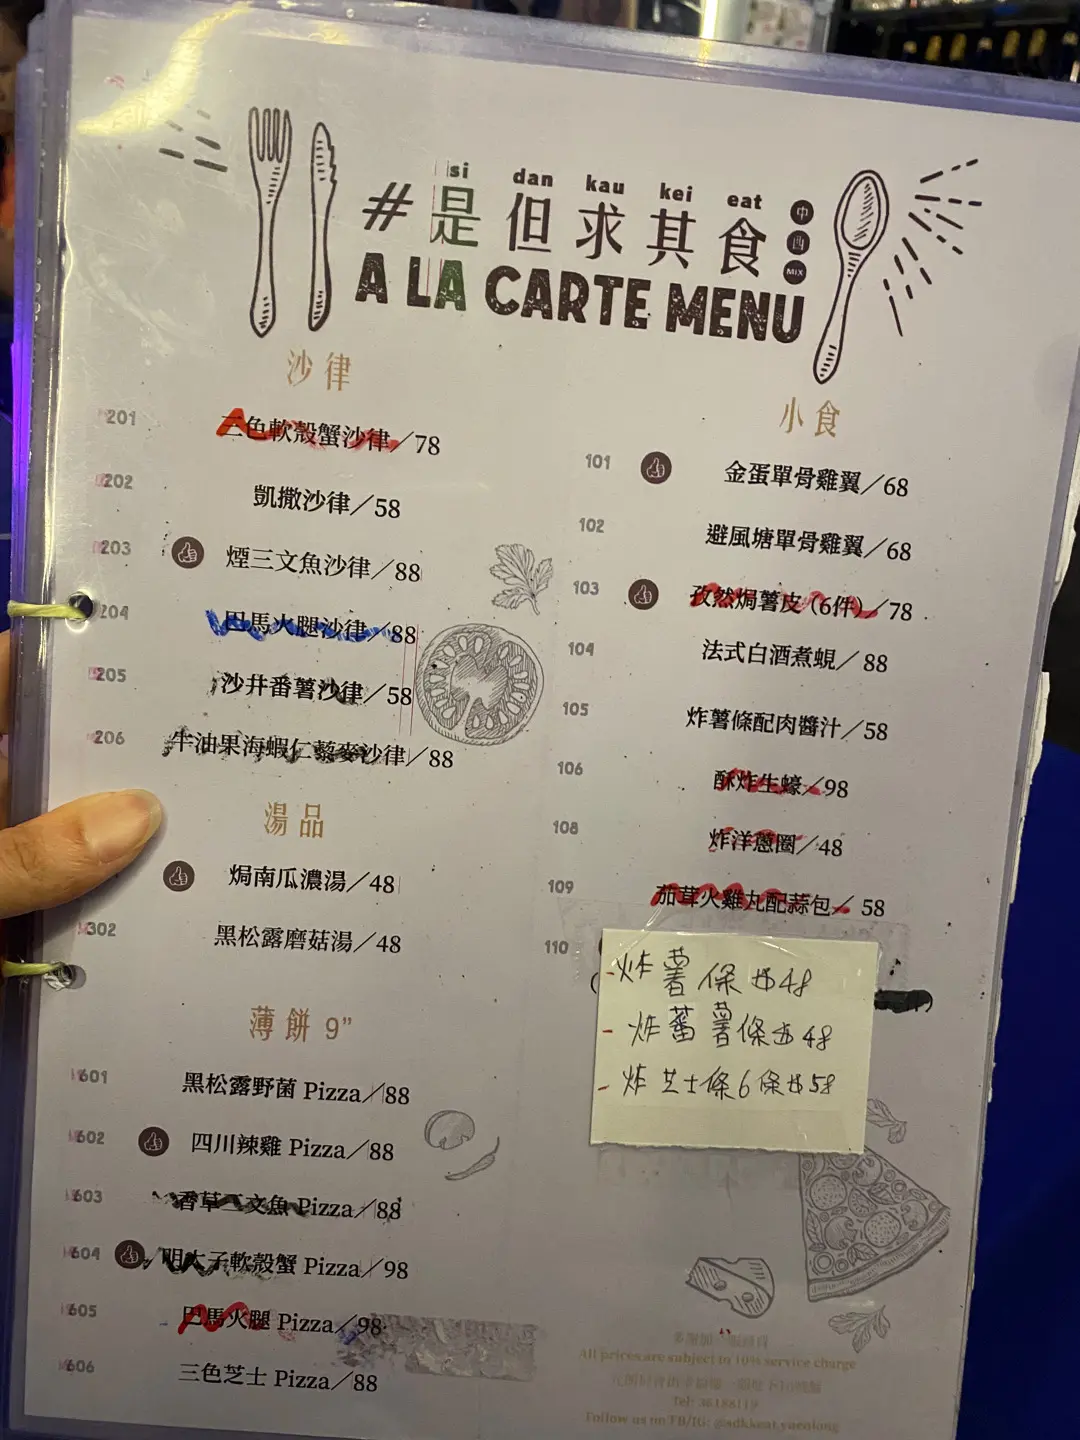 si dan kau kei eat
#是但求其食 中西MIX
A LA CARTE MENU
沙律
201 三色軟殼蟹沙律/78
202 凱撒沙律/58
203 煙三文魚沙律/88
204 巴馬火腿沙律/88
205 沙井番薯沙律/58
206 牛油果海蝦仁藜麥沙律/88
湯品
焗南瓜濃湯/48
302 黑松露磨菇湯/48
薄餅 9”
601 黑松露野菌 Pizza/88
602 四川辣雞 Pizza/88
603 香草三文魚 Pizza/88
604 明太子軟殼蟹 Pizza/98
605 巴馬火腿 Pizza/98
606 三色芝士 Pizza/88
小食
101 金蛋單骨雞翼/68
102 避風塘單骨雞翼/68
103 孜然焗薯皮(6件)/78
104 法式白酒煮蜆/88
105 炸薯條配肉醬汁/58
106 酥炸生蠔/98
108 炸洋蔥圈/48
109 茄茸火雞丸配蒜包/58
110
-炸薯條$48
-炸蕃薯條$48
-炸芝士條6條$58
All prices are subject to 10% service charge
Tel: 36188119
Follow us on FB/IG: @sdkkeat.yuenlong